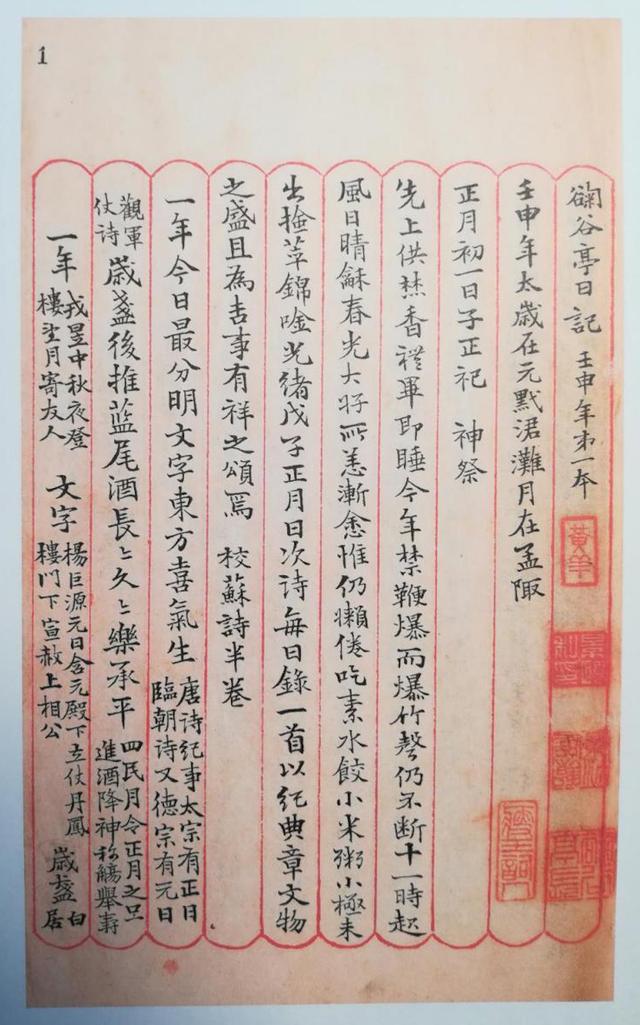 1
鞠谷亭日記 壬申年第一本
壬申年太歲在元默涒灘月在孟陬
正月初一日子正祀 神祭
先上供焚香禮畢即睡今年禁鞭爆而爆竹聲仍不断十一時起
風日晴龢春光大好所恙漸愈惟仍嬾倦吃素水餃小米粥小極未
出撿萃錦唫光緒戊子正月日次詩每日錄一首以紀典章文物
之盛且為吉事有祥之頌焉 校蘇詩半卷
一年今日最分明文字東方喜氣生 唐詩紀事太宗有正日
臨朝詩又德宗有元日
觀軍
仗詩 歲盞後推蓝尾酒長〻久〻樂承平 四民月令正月之旦
進酒降神称觴舉壽
一年 戎昱中秋夜登
樓望月寄友人 文字 楊巨源元日含元殿下立仗丹鳳
樓門下宣赦上相公 歲盞 白
居
黃羊